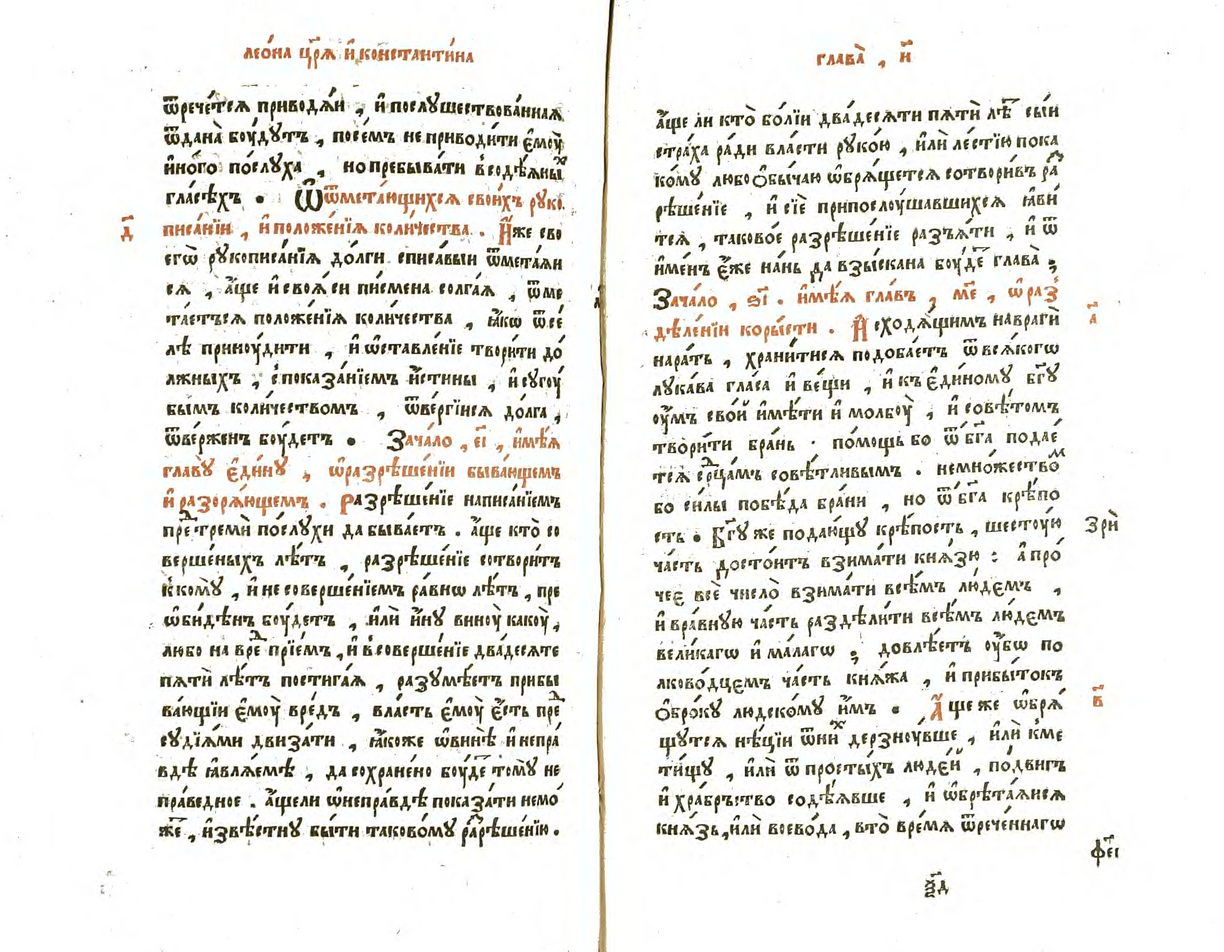 леѡ́на цр҃ѧ и҆ константи́на
ѿрече́тсѧ приводѧ́и , и҆ послꙋшествова́ннаѧ
ѿдана̀ бꙋ́дꙋтъ , посе́мъ не приводи́ти є҆мꙋ̀
и҆но́го по́слꙋха , но пребыва́ти в̾содѣ́ѧны́х
гласѣ́хъ . Ѿ ѿмета́ющихсѧ свои́хъ рꙋко
д҃
писа́нїи , и҆ положе́нїѧ коли́чества . И҆́же сво
егѡ̀ рꙋкописа́нїѧ до́лги списа́выи ѿмета́ѧи
сѧ , а҆́ще и҆ своѧ̀ си пи́смена солга́ѧ , ѿме
та́етъсѧ положе́нїѧ коли́чества , ꙗ҆́кѡ ѿсе́
лѣ принꙋ́дити , и҆ ѡ҆ставле́нїе твори́ти до́
лжныхъ , с̾показа́нїемъ и҆́стины , и҆ сꙋгꙋ́
бымъ коли́чествомъ , ѿве́ргїисѧ до́лга ,
ѿве́рженъ бꙋ́детъ . Зача́ло , є҃і , и҆мѣ́ѧ
главꙋ̀ є҆ди́нꙋ , ѡ҆разрѣше́нїи быва́ющемъ
и҆ разорѧ́ющемъ . Разрѣше́нїе написа́нїемъ
прⷣе тремѝ по́слꙋхи да быва́етъ . а҆́ще кто̀ со
верше́ныхъ лѣ́тъ , разрѣше́нїе сотвори́тъ
к̾комꙋ̀ , и҆ не соверше́нїемъ ра́внѡ лѣ́тъ , пре
ѡ҆би́дѣнъ бꙋ́детъ , и҆лѝ и҆́нꙋ винꙋ̀ какꙋ̀ ,
любо на врⷨе прїе́мъ , и҆ в̾соверше́нїе два́десѧте
пѧтѝ лѣ́тъ пости́гаѧ , разꙋмѣ́етъ прибы
ва́ющїи є҆мꙋ̀ вре́дъ , вла́сть є҆мꙋ̀ є҆́сть прⷣе
сꙋдїѧ́ми дви́зати , ꙗ҆́коже ѡ҆винѣ̀ и҆ непра́
вдѣ ꙗ҆влѧ́емѣ , да сохране́но бꙋ́де томꙋ̀ не
пра́ведное . а҆́щели ѡ҆непра́вдѣ показа́ти немо́
же , и҆звѣ́стнꙋ бы́ти таково́мꙋ раⷥрѣше́нїю .
глава̀ , н҃
а҆́ще ли кто̀ бо́лїи два́десѧти пѧтѝ лѣⷮ сы́и
стра́ха ради вла́сти рꙋко́ю , и҆лѝ ле́стїю пока
ко́мꙋ любо ѻ҆бы́чаю ѡ҆брѧ́щетсѧ сотвори́въ раⷥ
рѣше́нїе , и҆ сїѐ припослꙋ́шавшихсѧ ꙗ҆ви́
тсѧ , таково́е разрѣше́нїе разъѧ́ти , и҆ ѿ
и҆ме́нъ є҆́же на́нь да взы́скана бꙋ́де глава̀ ;
Зача́ло , ѕ҃і . и҆мѣ́ѧ гла́въ , м҃е , ѡ҆ раз̾
а҃
дѣле́нїи коры́сти . И҆сходѧ́щимъ на врагѝ
на ра́ть , храни́тисѧ подоба́етъ ѿ всѧ́когѡ
лꙋка́ва гла́са и҆ ве́щи , и҆ къ є҆ди́номꙋ бг҃ꙋ
ꙋ҆́мъ сво́й и҆мѣ́ти и҆ молбꙋ̀ , и҆ совѣ́томъ
твори́ти бра́нь . по́мощь бо ѿ бг҃а подае́
тсѧ срⷣцамъ совѣ́тливымъ . немно́жествоⷨ
бо си́лы побѣ́да бра́ни , но ѿ бг҃а крѣ́по
сть . Бг҃ꙋ же подаю́щꙋ крѣ́пость , шестꙋ́ю
зрѝ
ча́сть досто́итъ взима́ти кнѧ́зю : а҆ про́
чее всѐ число̀ взима́ти всѣ́мъ лю́демъ ,
и҆ в ра́внꙋю ча́сть раздѣли́ти всѣ́мъ лю́демъ
вели́кагѡ и҆ ма́лагѡ ; довлѣ́етъ ꙋ҆́бѡ по
лково́дцемъ ча́сть кнѧ́жа , и҆ прибы́токъ
ѻ҆бро́кꙋ людско́мꙋ и҆́мъ . А҆́ще же ѡ҆брѧ́
в҃
щꙋтсѧ нѣ́цїи ѿ ни́ⷯ дерзнꙋ́вше , и҆лѝ кме
ти́щꙋ , и҆лѝ ѿ просты́хъ люде́й , по́двигъ
и҆ хра́брьство содѣ́ѧвше , и҆ ѡ҆брѣта́ѧисѧ
кнѧ́зь , и҆лѝ воево́да , в то̀ вре́мѧ ѿрече́ннагѡ
фе҃і
ѯ҃д